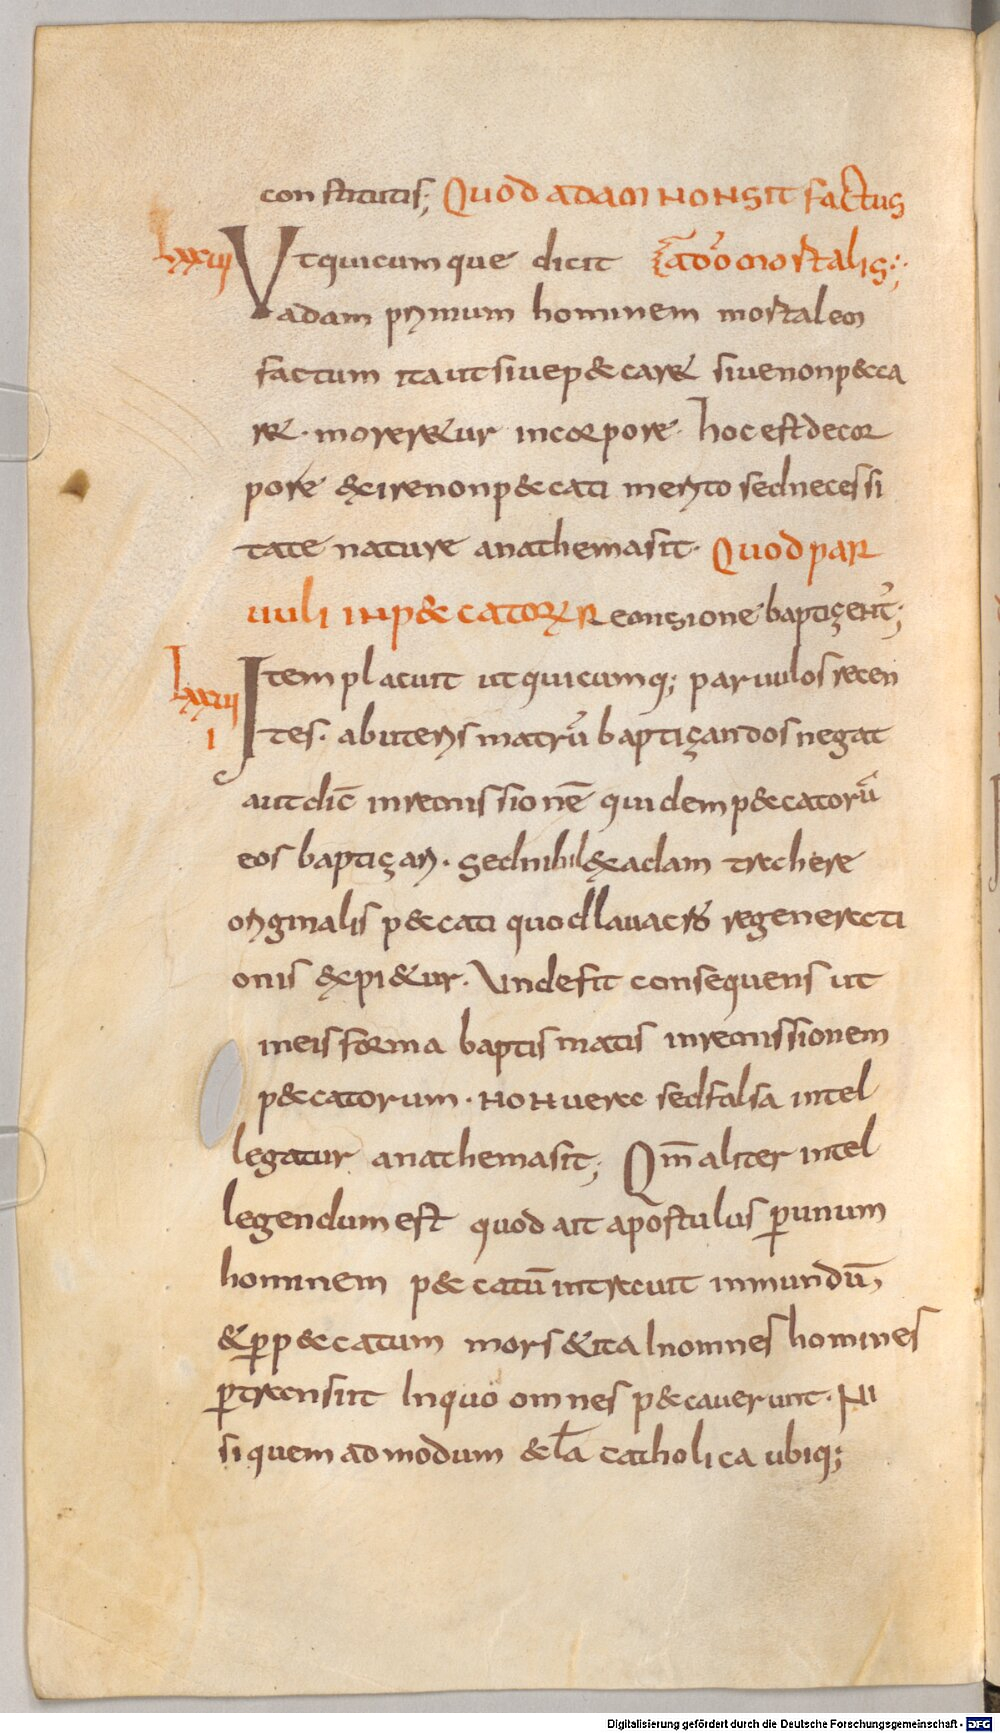 constitutis; Quod adam non sit factus
Lxxvii Ut quicumque dicit a dō mortalis:;
adam primum hominem mortalem
factum ita ut siue p&care& siue non p&ca
re& · morere&ur in corpore · hoc est de cor
pore &ire non p&cati merito sed necessi
tate nature anathemasit · Quod par
uuli in p&catorr remisione baptizent᷑;
Lxxvii Item placuit ut quicumq; paruulos recen
i tes · ab uteris matrū baptizandos negat
aut dic̄ in remissionē quidem p&catorū
eos baptizari · sed nihil & adam trahere
originalis p&cati quod lauacro regenerati
onis &pi&ur · Unde fit consequens ut
in eis forma baptis matis in remissionem
p&catorum · non uera sed falsa intel
legatur anathemasit; Qm̄ aliter intel
legendum est quod ait apostulus p̄ unum
hominem p&catū intrauit in mundū,
& p̄ p&catum mors & ita in omnes homines
p̄transiit In quo omnes p&cauerunt · Ni
si quem admodum &cl̄a catholica ubiq;
Digitalisierung gefördert durch die Deutsche Forschungsgemeinschaft - DFG